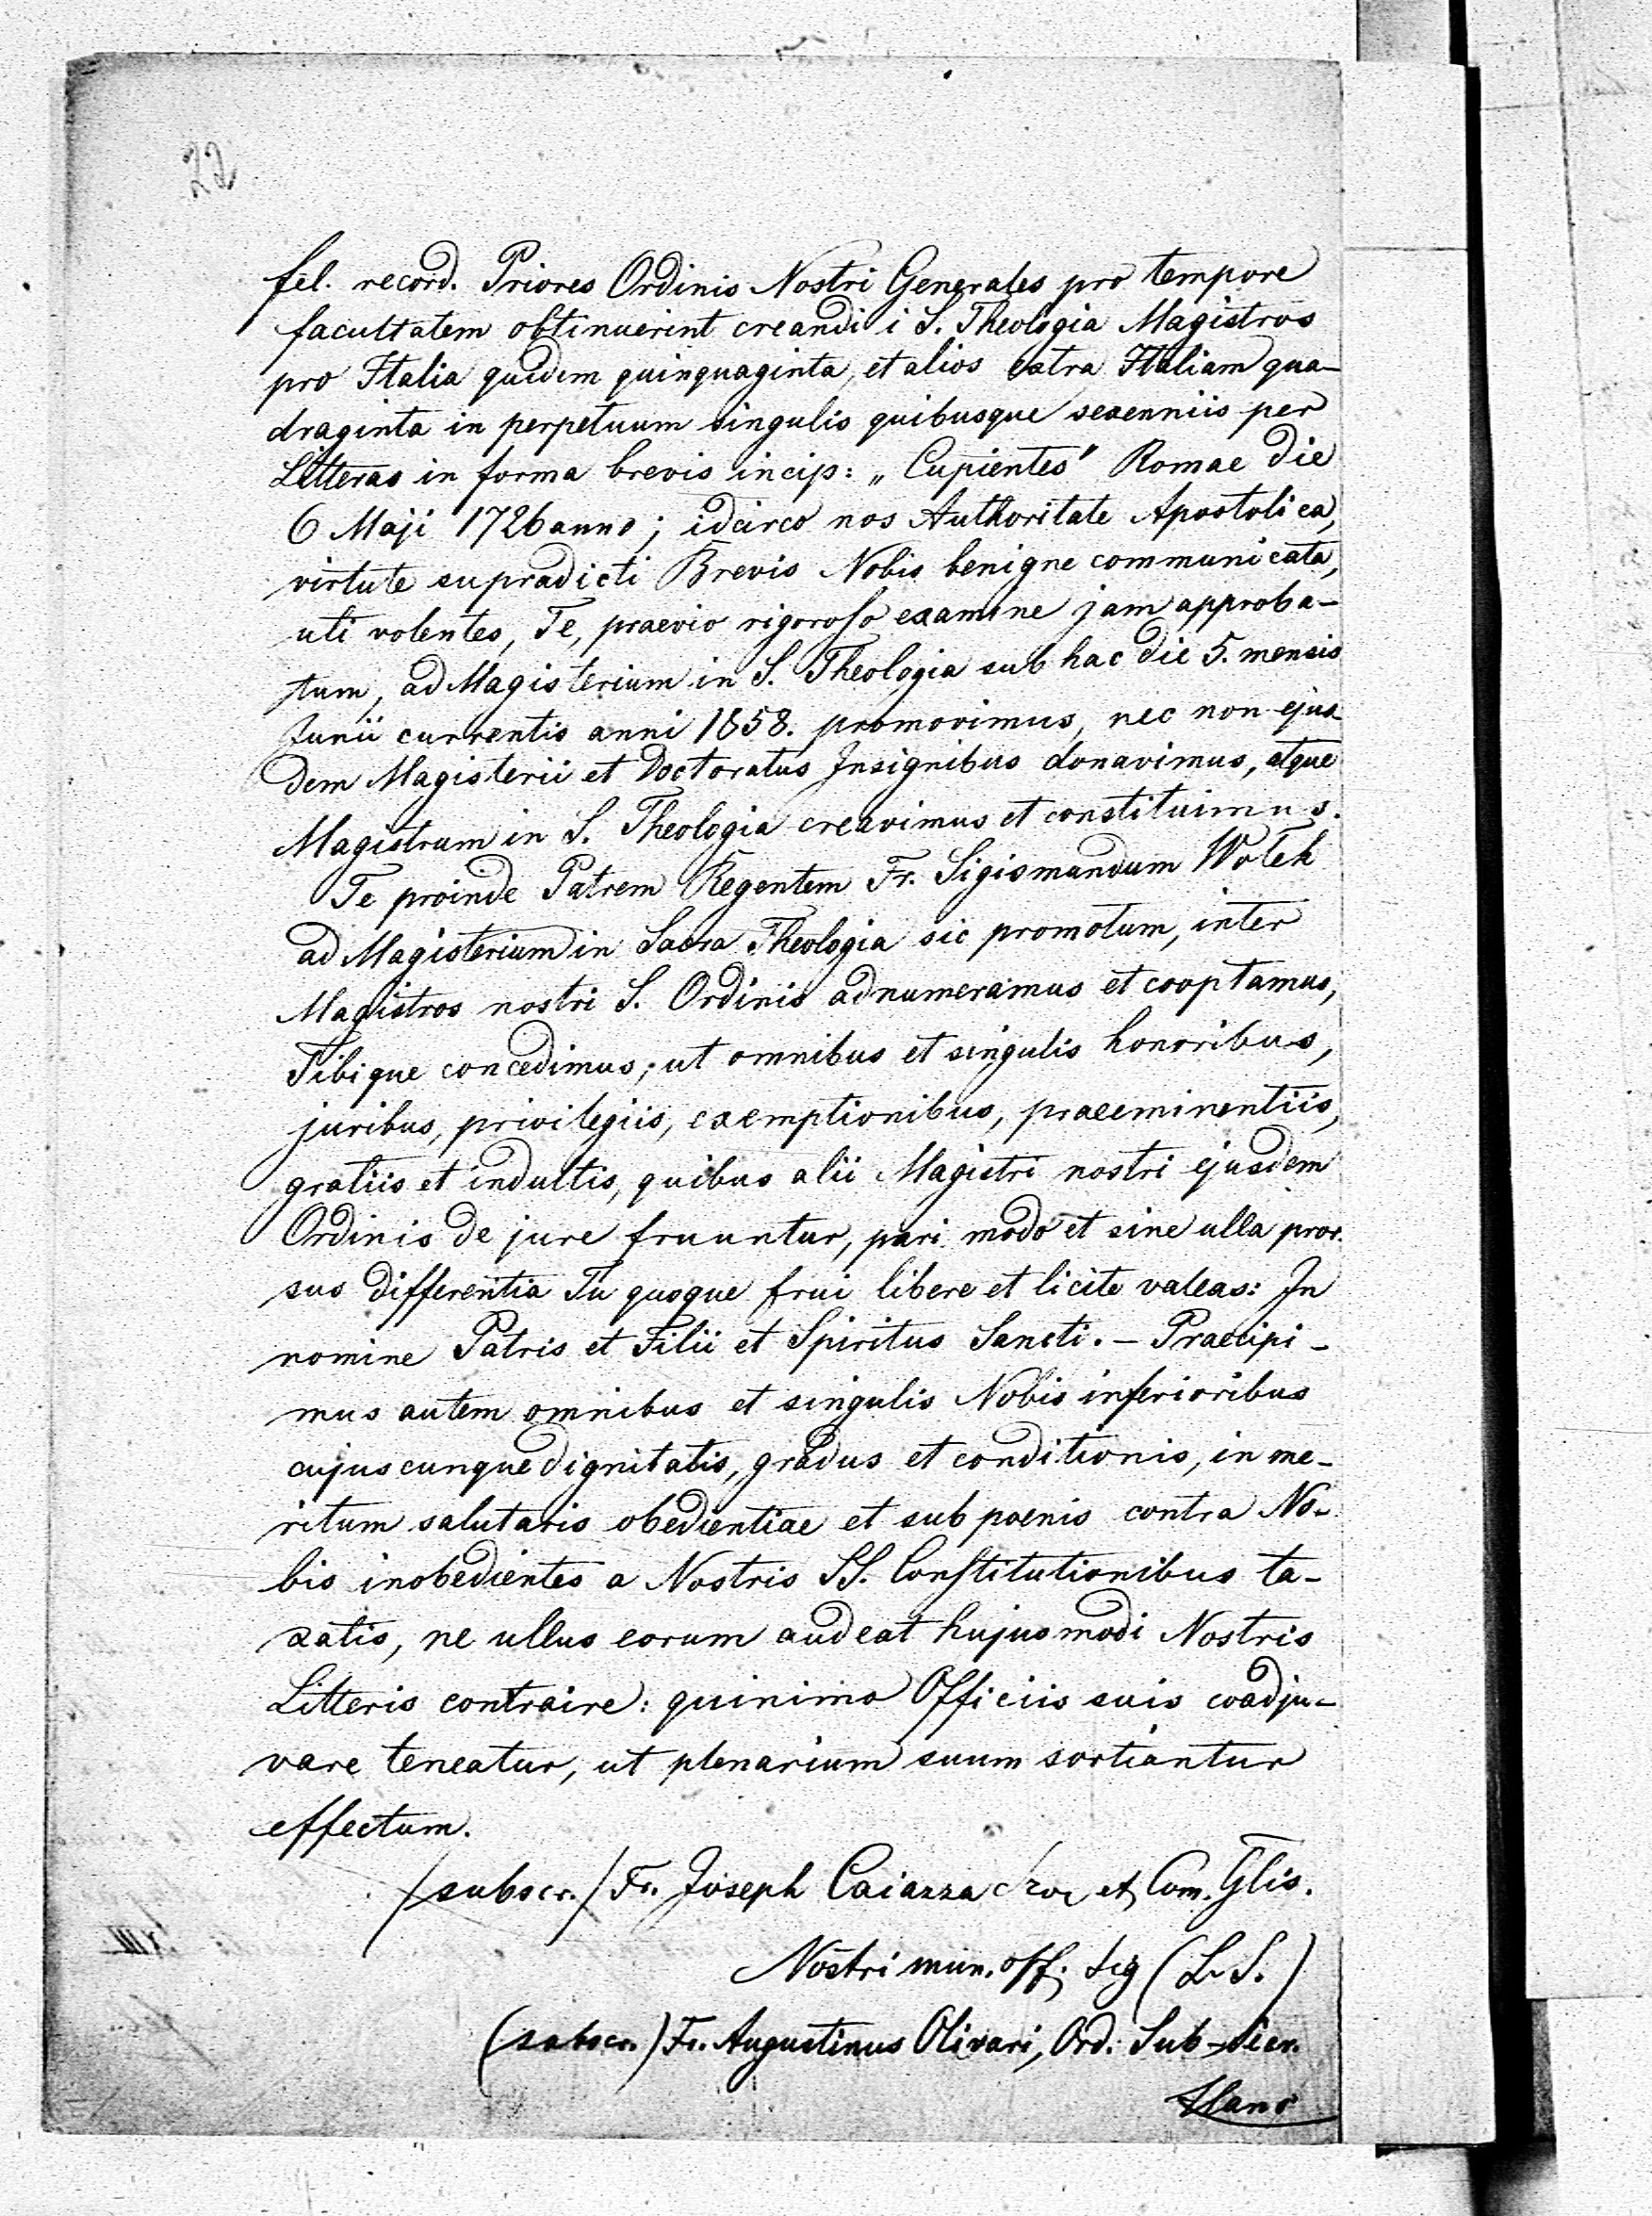 22
fel. record. Priores Ordinis Nostri Generales pro tempore
facultatem obtinuerint creandi i S. Theologia Magistros
pro Italia quidem quinquaginta, et alios extra Italiam qua-
draginta in perpetuum singulis quibusque sexenniis per
Litteras in forma brevis incip: „Cupientes" Romae die
6 Maji 1726 anno; idcirco nos Authoritate Apostolica,
virtute supradicti Brevis Nobis benigne communicata,
uti volentes, Te, praevio rigoroso examine jam approba-
tum, ad Magisterium in S. Theologia sub hac die 5. mensis
Junii currentis anni 1858. promovimus, nec non ejus-
dem Magisterii et Doctoratus Insignibus donavimus, atque
Magistrum in S. Theologia creavimus et constituimus.
Te proinde Patrem Regentem Fr. Sigismundum Wotek
ad Magisterium in Sacra Theologia sic promotum, inter
Magistros nostri S. Ordinis adnumeramus et cooptamus,
Tibique concedimus, ut omnibus et singulis honoribus,
juribus, privilegiis, exemptionibus, praeeminentiis,
gratiis et indultis, quibus alii Magistri nostri ejusdem
Ordinis de jure fruuntur, pari modo et sine ulla pror-
sus differentia Tu quoque frui libere et licite valeas: In
nomine Patris et Filii et Spiritus Sancti. – Praecipi-
mus autem omnibus et singulis Nobis inferioribus
cujuscunque dignitatis, gradus et conditionis, in me-
ritum salutaris obedientiae et sub poenis contra No-
bis inobedientes a Nostris SS. Constitutionibus ta-
xatis, ne ullus eorum audeat hujusmodi Nostris
Litteris contraire: quinimo Officiis suis coadju-
vare teneatur, ut plenarium suum sortiantur
effectum.
/subscr./ Fr. Joseph Caiazza et Com. Glis.
Nostri mun. off. sig (L. S.)
(subscr.) Fr. Augustinus Olivari, Ord. Sub-Secr.